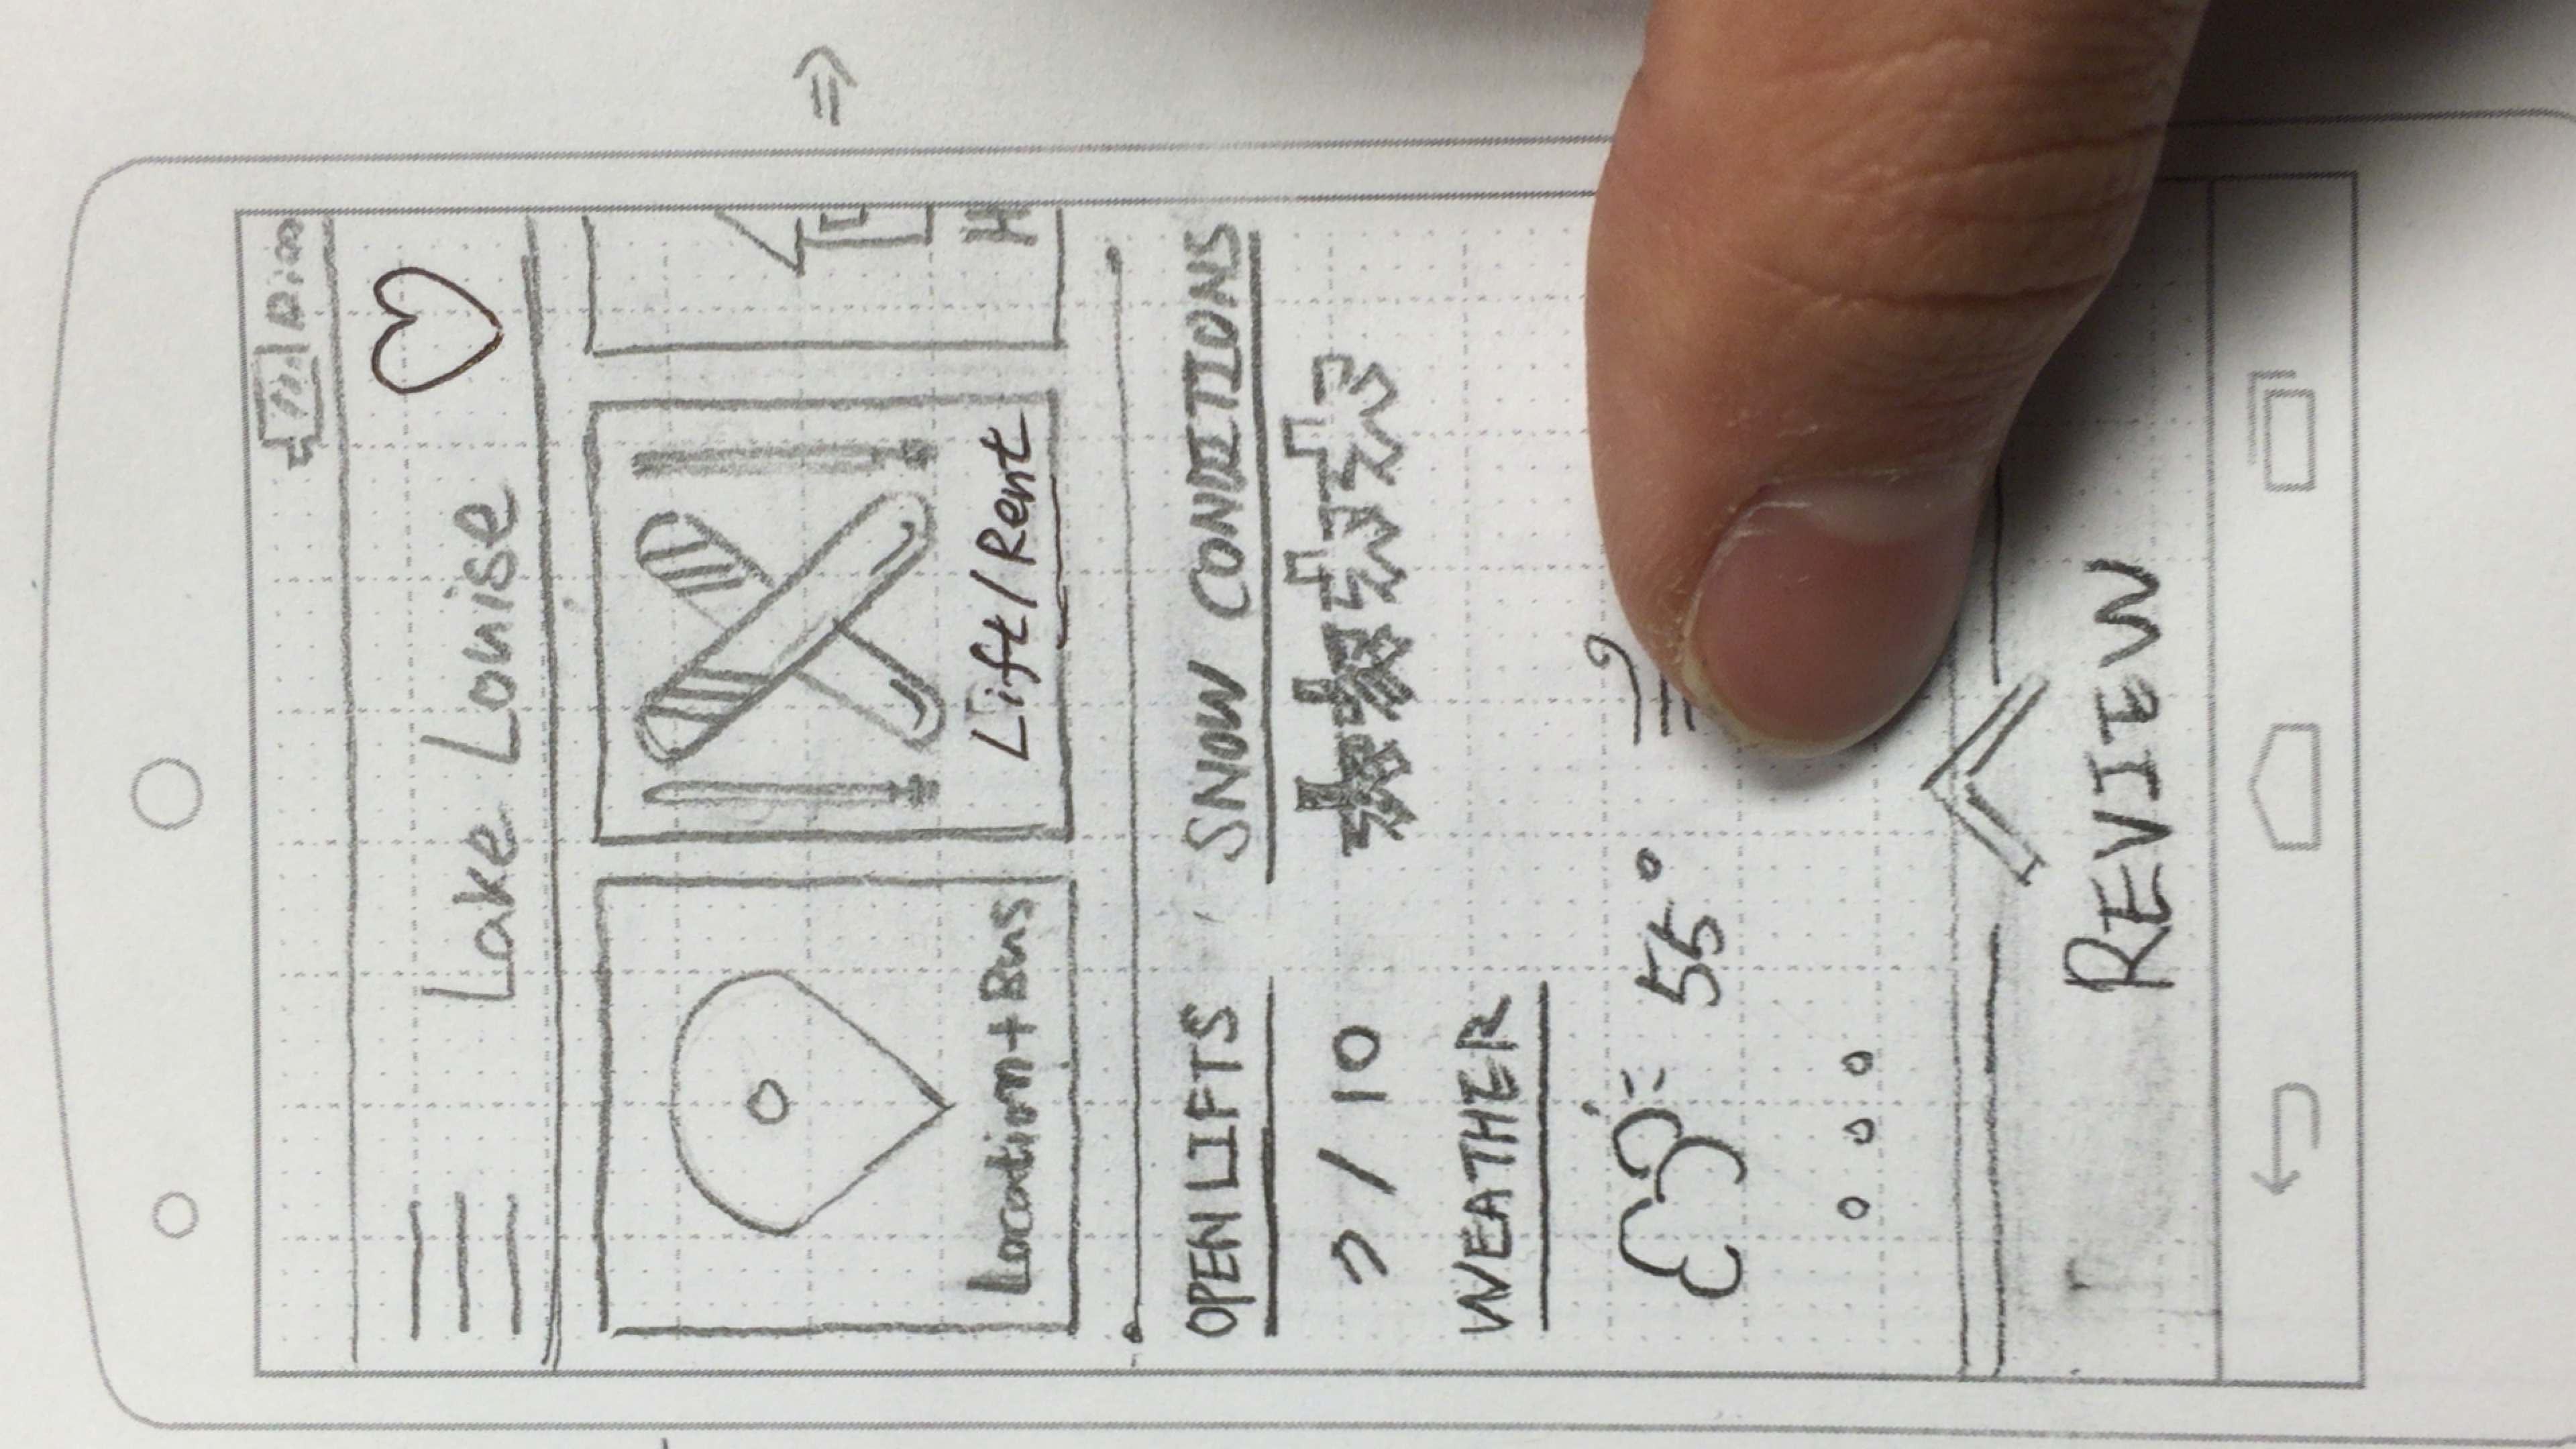 Lake Louise
Location+Bus
Lift/Rent
H
OPEN LIFTS
SNOW CONDITIONS
/ 10
WEATHER
55°
REVIEW